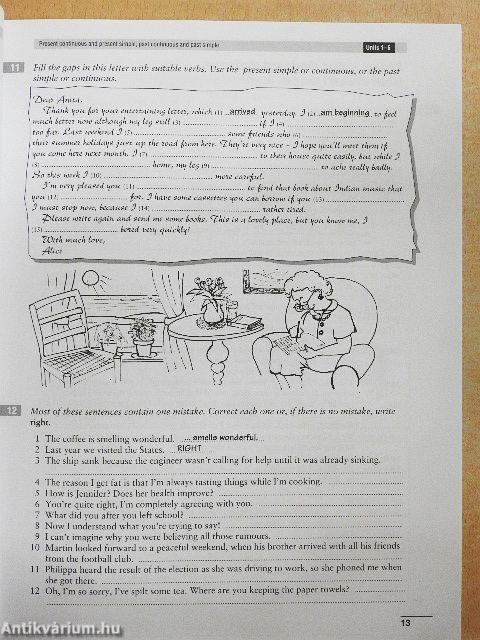 Present continuous and present simple, past continuous and past simple
Units 1–6
11 Fill the gaps in this letter with suitable verbs. Use the present simple or continuous, or the past
simple or continuous.
Dear Anita,
Thank you for your entertaining letter, which (1) ...arrived... yesterday. I (2) ..am beginning.. to feel
much better now although my leg still (3) .......... if I (4) ..........
too far. Last weekend I (5) .......... some friends who (6) ..........
their summer holidays just up the road from here. They're very nice – I hope you'll meet them if
you come here next month. I (7) .......... to their house quite easily, but while I
(8) .......... home, my leg (9) .......... to ache really badly.
So this week I (10) .......... more careful.
I'm very pleased you (11) .......... to find that book about Indian music that
you (12) .......... for. I have some cassettes you can borrow if you (13) ..........
I must stop now, because I (14) .......... rather tired.
Please write again and send me some books. This is a lovely place, but you know me, I
(15) .......... bored very quickly!
With much love,
Alice
12 Most of these sentences contain one mistake. Correct each one or, if there is no mistake, write
right.
1 The coffee is smelling wonderful. ....smells wonderful....
2 Last year we visited the States. ...RIGHT...
3 The ship sank because the engineer wasn't calling for help until it was already sinking.
4 The reason I get fat is that I'm always tasting things while I'm cooking.
5 How is Jennifer? Does her health improve?
6 You're quite right, I'm completely agreeing with you.
7 What did you after you left school?
8 Now I understand what you're trying to say!
9 I can't imagine why you were believing all those rumours.
10 Martin looked forward to a peaceful weekend, when his brother arrived with all his friends
from the football club.
11 Philippa heard the result of the election as she was driving to work, so she phoned me when
she got there.
12 Oh, I'm so sorry, I've spilt some tea. Where are you keeping the paper towels?
13
Antikvárium.hu